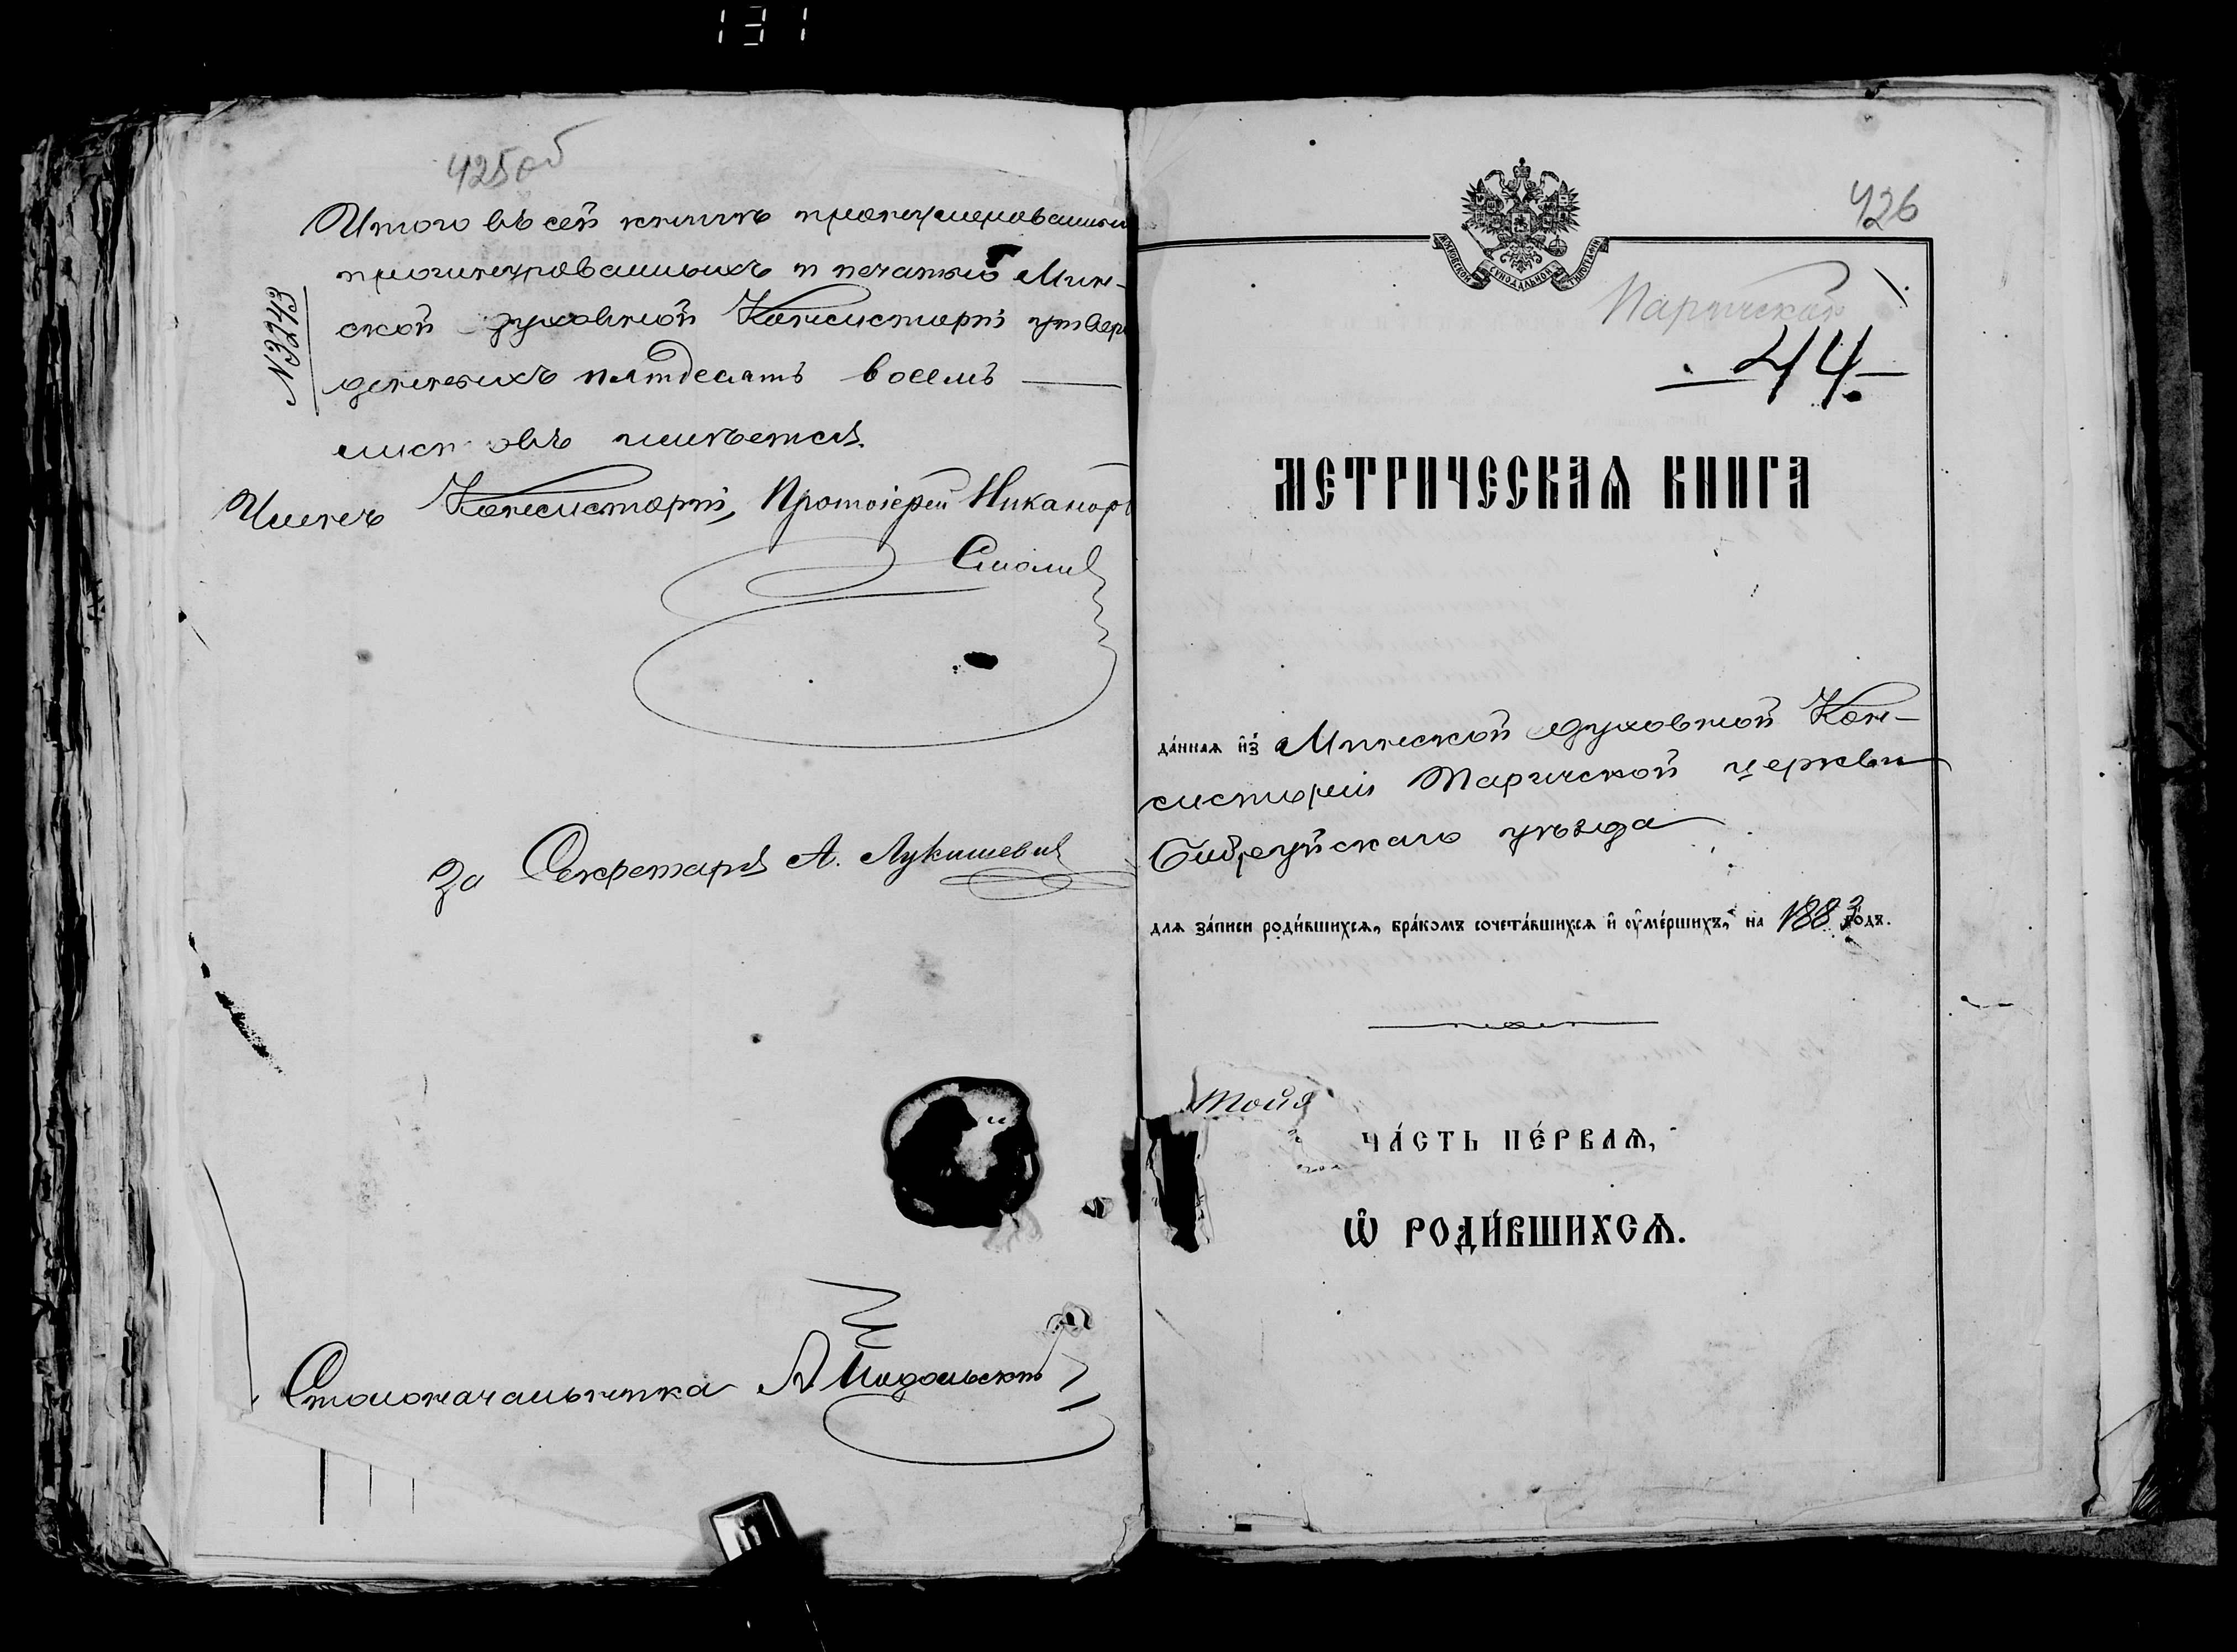 131
425об
Итого въ сей книгѣ пронумерованныхъ
прошнурованныхъ и печатью Мин-
ской духовной Консисторіи утвер
жденныхъ пятдесятъ восемь
листовъ имѣется.
№3243
Членъ Консисторіи, Протоіерей Никаноръ
Смолич
За Секретаря А. Лукашевич
Столоначальника А Подольскій
426
МОСКОВСКОЙ СѴНОДАЛЬНОЙ ТИПОГРАФІИ
Паричская
44.
МЕТРИЧЕСКАѦ КНИГА
да́ннаѧ и҆з̾ Минской духовной Кон-
систоріи Паричской церкви
Бобруйскаго уѣзда
длѧ за́писи роди́вшихсѧ, бра́комъ сочета́вшихсѧ и҆ ᲂу҆ме́ршихъ, на 1883 го́дъ.
ЧА́СТЬ ПЕ́РВАѦ,
Ѽ РОДИ́ВШИХСѦ.